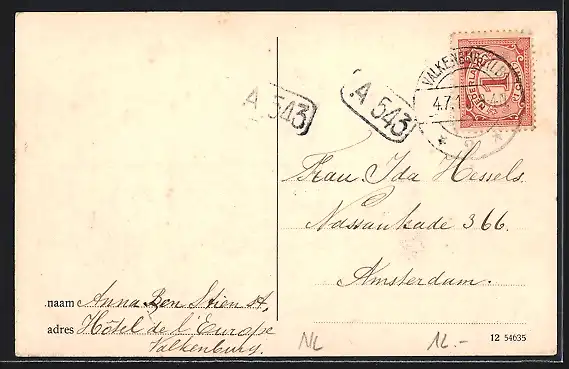 A 543
A 543
VALKENBURG
4.7.1
NEDERLAND
1
2
Frau. Ida Hessels.
Nassaukade 366.
Amsterdam.
naam Anna Ben Stien
adres Hôtel de l'Europe
Valkenburg.
NL
1L.-
12 54635